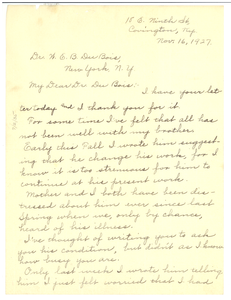 15 E. Ninth St,
Covington, Ky
Nov. 16, 1927.
Dr. W. E. B. Du Bois,
New York, N.Y
My Dear Dr Du Bois:-
I have your let
ter today and I thank you for it.
For some time I've felt that all has
not been well with my brother.
Early this Fall I wrote him suggest-
ing that he change his work, for I
know it is too strenuous for him to
continue at his present work.
Mother and I both have been dis-
tressed about him ever since last
Spring when we, only by chance,
heard of his illness.
I've thought of writing you to ask
you his condition, but didn't as I know
how busy you are.
Only last week I wrote him telling
him I just felt worried that I had